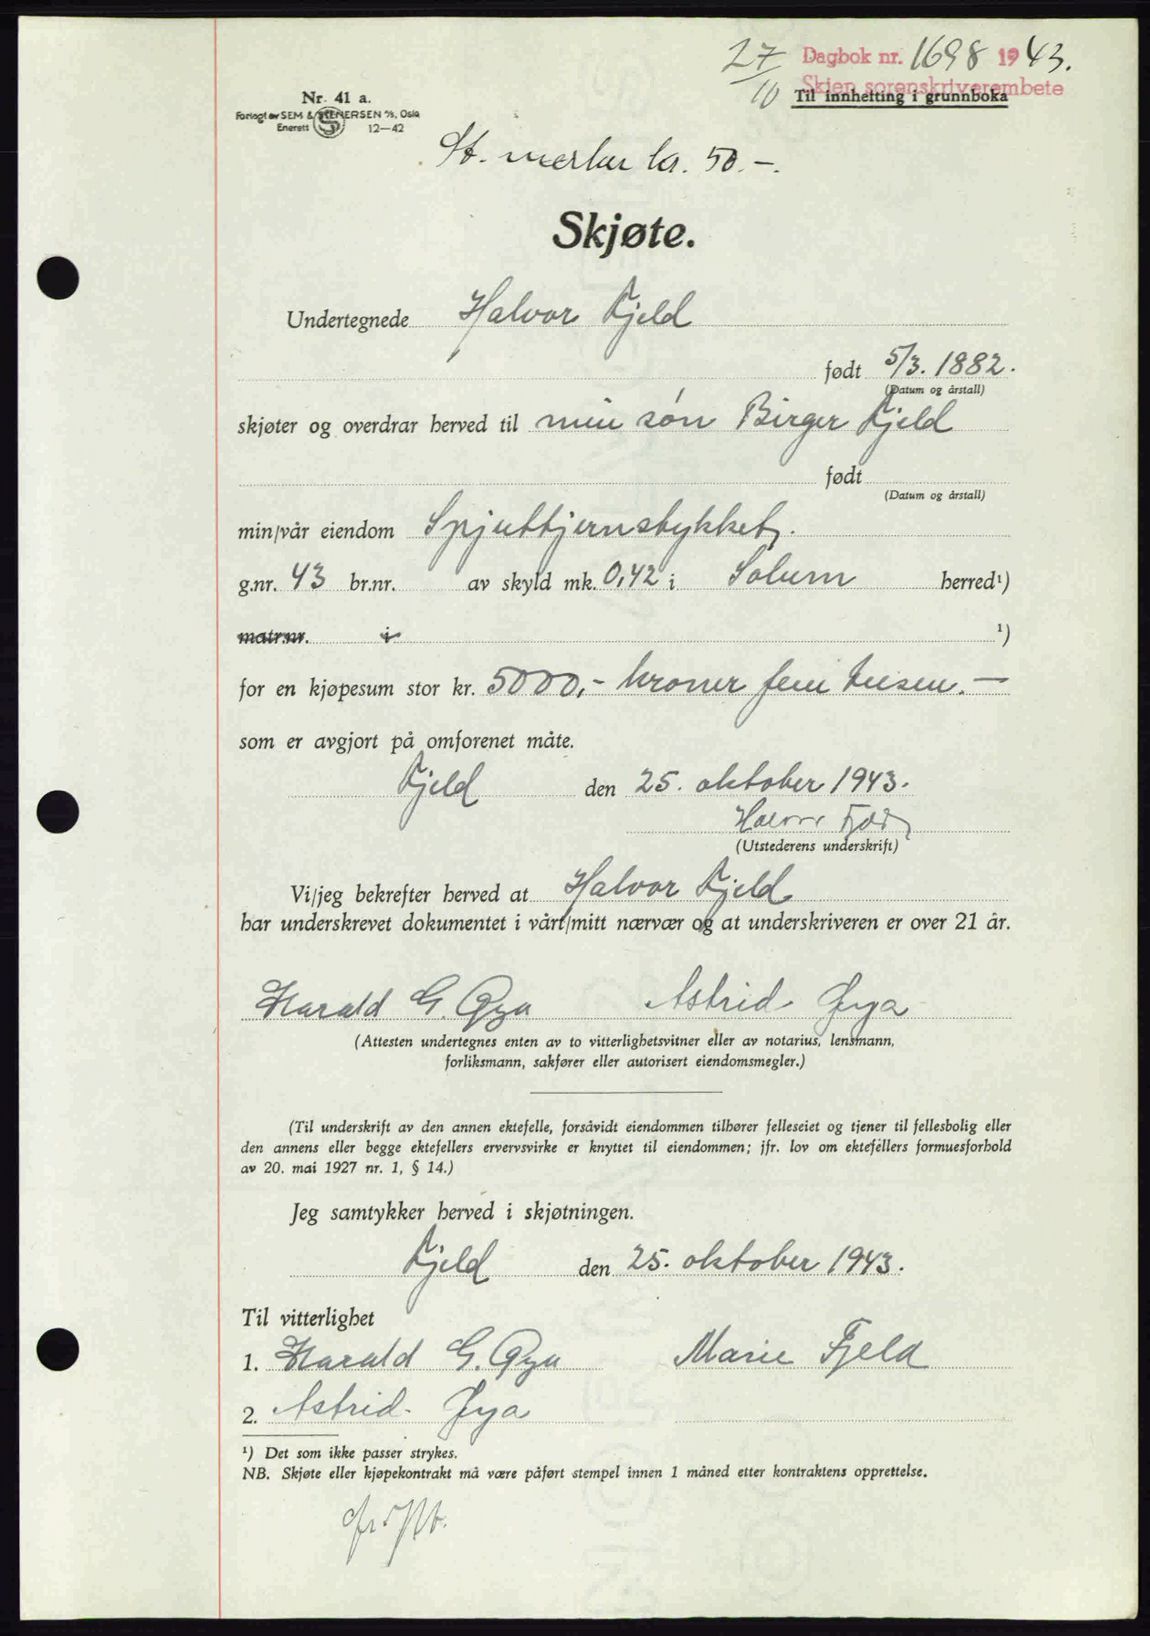 27/10 Dagbok nr. 1698 1943.
Skien sorenskriverembete
Til innhefting i grunnboka
Nr. 41 a.
Forlagt av SEM & STENERSEN A/S, Oslo
Enerett S 12—42
St. merker kr. 50.-.
Skjøte.
Undertegnede Halvor Fjeld
født 5/3. 1882.
(Datum og årstall)
skjøter og overdrar herved til min sön Birger Fjeld
født
(Datum og årstall)
min/vår eiendom Spjuttjernstykket.
g.nr. 43 br.nr. av skyld mk. 0,42 i Solum herred¹)
matr.nr. i ¹)
for en kjøpesum stor kr. 5000,- kroner fem tusen.—
som er avgjort på omforenet måte.
Fjeld den 25. oktober 1943.
Halvor Fjeld
(Utstederens underskrift)
Vi/jeg bekrefter herved at Halvor Fjeld
har underskrevet dokumentet i vårt/mitt nærvær og at underskriveren er over 21 år.
Harald G. Gya Astrid Gya
(Attesten undertegnes enten av to vitterlighetsvitner eller av notarius, lensmann,
forliksmann, sakfører eller autorisert eiendomsmegler.)
(Til underskrift av den annen ektefelle, forsåvidt eiendommen tilhører felleseiet og tjener til fellesbolig eller
den annens eller begge ektefellers ervervsvirke er knyttet til eiendommen; jfr. lov om ektefellers formuesforhold
av 20. mai 1927 nr. 1, § 14.)
Jeg samtykker herved i skjøtningen.
Fjeld den 25. oktober 1943.
Til vitterlighet
1. Harald G. Gya Marie Fjeld
2. Astrid Gya
¹) Det som ikke passer strykes.
NB. Skjøte eller kjøpekontrakt må være påført stempel innen 1 måned etter kontraktens opprettelse.